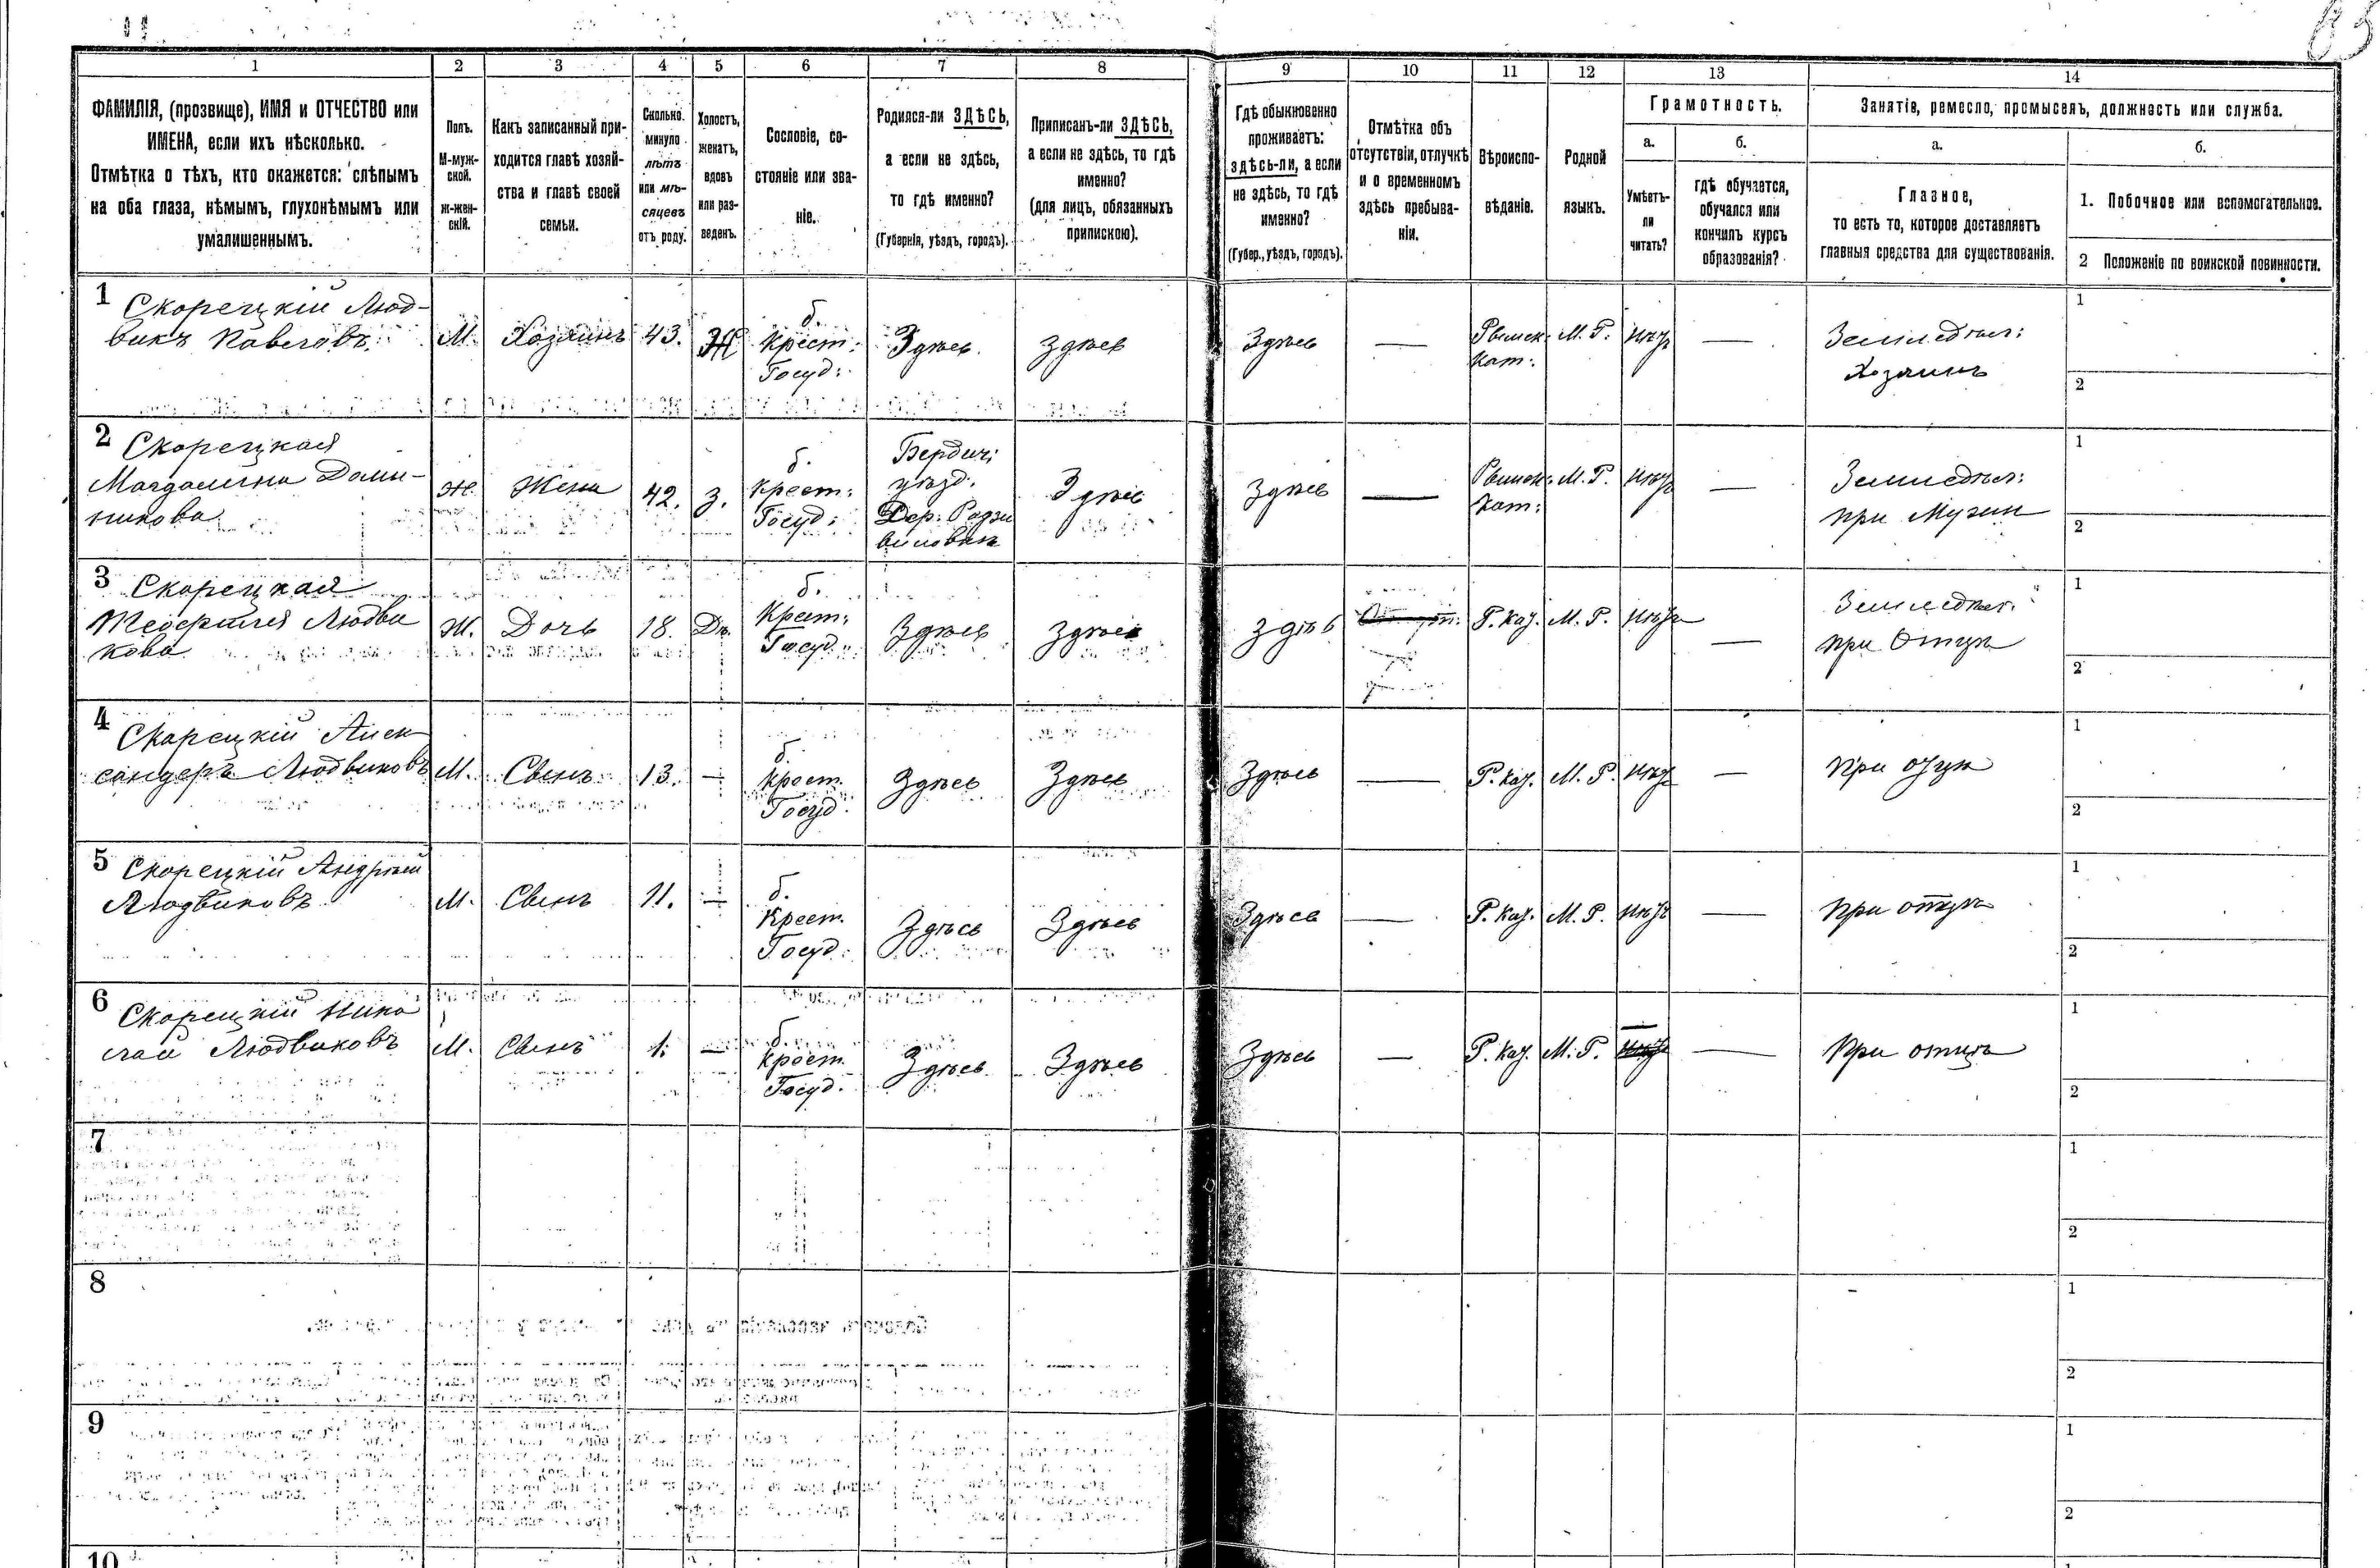 1 2 3 4 5 6 7 8 9 10 11 12 13 14
ФАМИЛІЯ, (прозвище), ИМЯ и ОТЧЕСТВО или
ИМЕНА, если ихъ нѣсколько.
Отмѣтка о тѣхъ, кто окажется: слѣпымъ
на оба глаза, нѣмымъ, глухонѣмымъ или
умалишеннымъ.
Полъ.
М-муж-
ской.
Ж-жен-
скій.
Какъ записанный при-
ходится главѣ хозяй-
ства и главѣ своей
семьи.
Сколько
минуло
лѣтъ
или мѣ-
сяцевъ
отъ роду.
Холостъ,
женатъ,
вдовъ
или раз-
веденъ.
Сословіе, со-
стояніе или зва-
ніе.
Родился-ли ЗДѢСЬ,
а если не здѣсь,
то гдѣ именно?
(Губернія, уѣздъ, городъ).
Приписанъ-ли ЗДѢСЬ,
а если не здѣсь, то гдѣ
именно?
(для лицъ, обязанныхъ
припискою).
Гдѣ обыкновенно
проживаетъ:
здѣсь-ли, а если
не здѣсь, то гдѣ
именно?
(Губер., уѣздъ, городъ).
Отмѣтка объ
отсутствіи, отлучкѣ
и о временномъ
здѣсь пребыва-
ніи.
Вѣроиспо-
вѣданіе.
Родной
языкъ.
Грамотность.
а.
Умѣетъ-
ли
читать?
б.
гдѣ обучается,
обучался или
кончилъ курсъ
образованія?
Занятіе, ремесло, промыселъ, должность или служба.
а.
Главное,
то есть то, которое доставляетъ
главныя средства для существованія.
б.
1. Побочное или вспомогательное.
2 Положеніе по воинской повинности.
1 Скорецкій Люд-
викъ Павловъ
М.
Хозяинъ
43.
Ж
б.
Крест:
Госуд:
Здѣсь
здѣсь
Здѣсь
—
Римск:
Кат:
М. Р.
нѣтъ
—
Земледѣл:
Хозяинъ
1
2
2 Скорецкая
Магдалина Доми-
никова
Ж
Жена
42.
З.
б.
Крест:
Госуд:
Бердич:
уѣзд.
Дер: Радзи
виловка
Здѣсь
Здѣсь
—
Римск:
Кат:
М. Р.
нѣтъ
—
Земледѣл:
при Мужи
1
2
3 Скорецкая
Теофилія Людви
кова
Ж.
Дочь
18.
Дѣ.
б.
Крест:
Госуд
Здѣсь
здѣсь
Здѣсь
Р. Кат.
М. Р.
нѣтъ
—
Земледѣл:
при Отцѣ
1
2
4 Скорецкій Алек
сандеръ Людвиковъ
М.
Сынъ
13.
—
б.
Крест.
Госуд.
Здѣсь
Здѣсь
Здѣсь
—
Р. Кат.
М. Р.
нѣтъ
—
При отцѣ
1
2
5 Скорецкій Андрѣй
Людвиковъ
М.
Сынъ
11.
—
б.
Крест.
Госуд:
Здѣсь
Здѣсь
Здѣсь
—
Р. Кат.
М. Р.
нѣтъ
—
При отцѣ
1
2
6 Скорецкій Нико
лай Людвиковъ
М.
Сынъ
1.
—
б.
Крест.
Госуд.
Здѣсь
Здѣсь
Здѣсь
—
Р. Кат.
М. Р.
—
—
При отцѣ
1
2
7
1
2
8
1
2
9
1
2
10